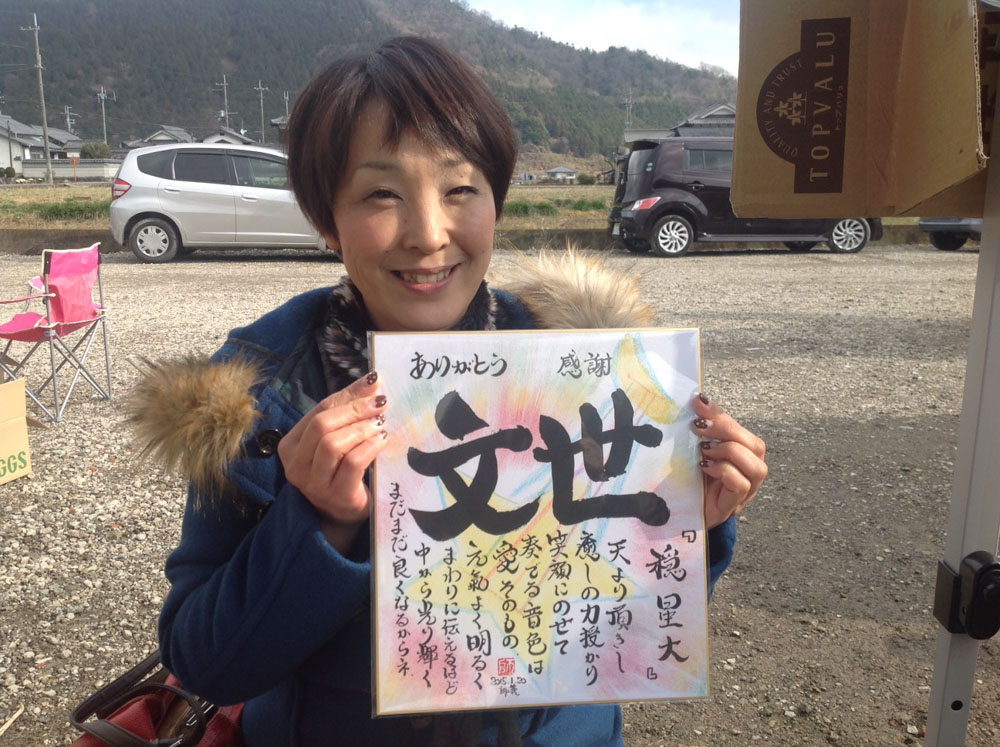 ありがとう 感謝
文世
『穏星大』
天より頂きし
癒しの力授かり
笑顔にのせて
奏でる音色は
愛そのもの
元氣よく明るく
まわりに伝えるほど
中から光り輝く
まだまだ良くなるからネ
2015.1.20
QUALITY AND TRUST
TOPVALU
トップバリュ
GGS